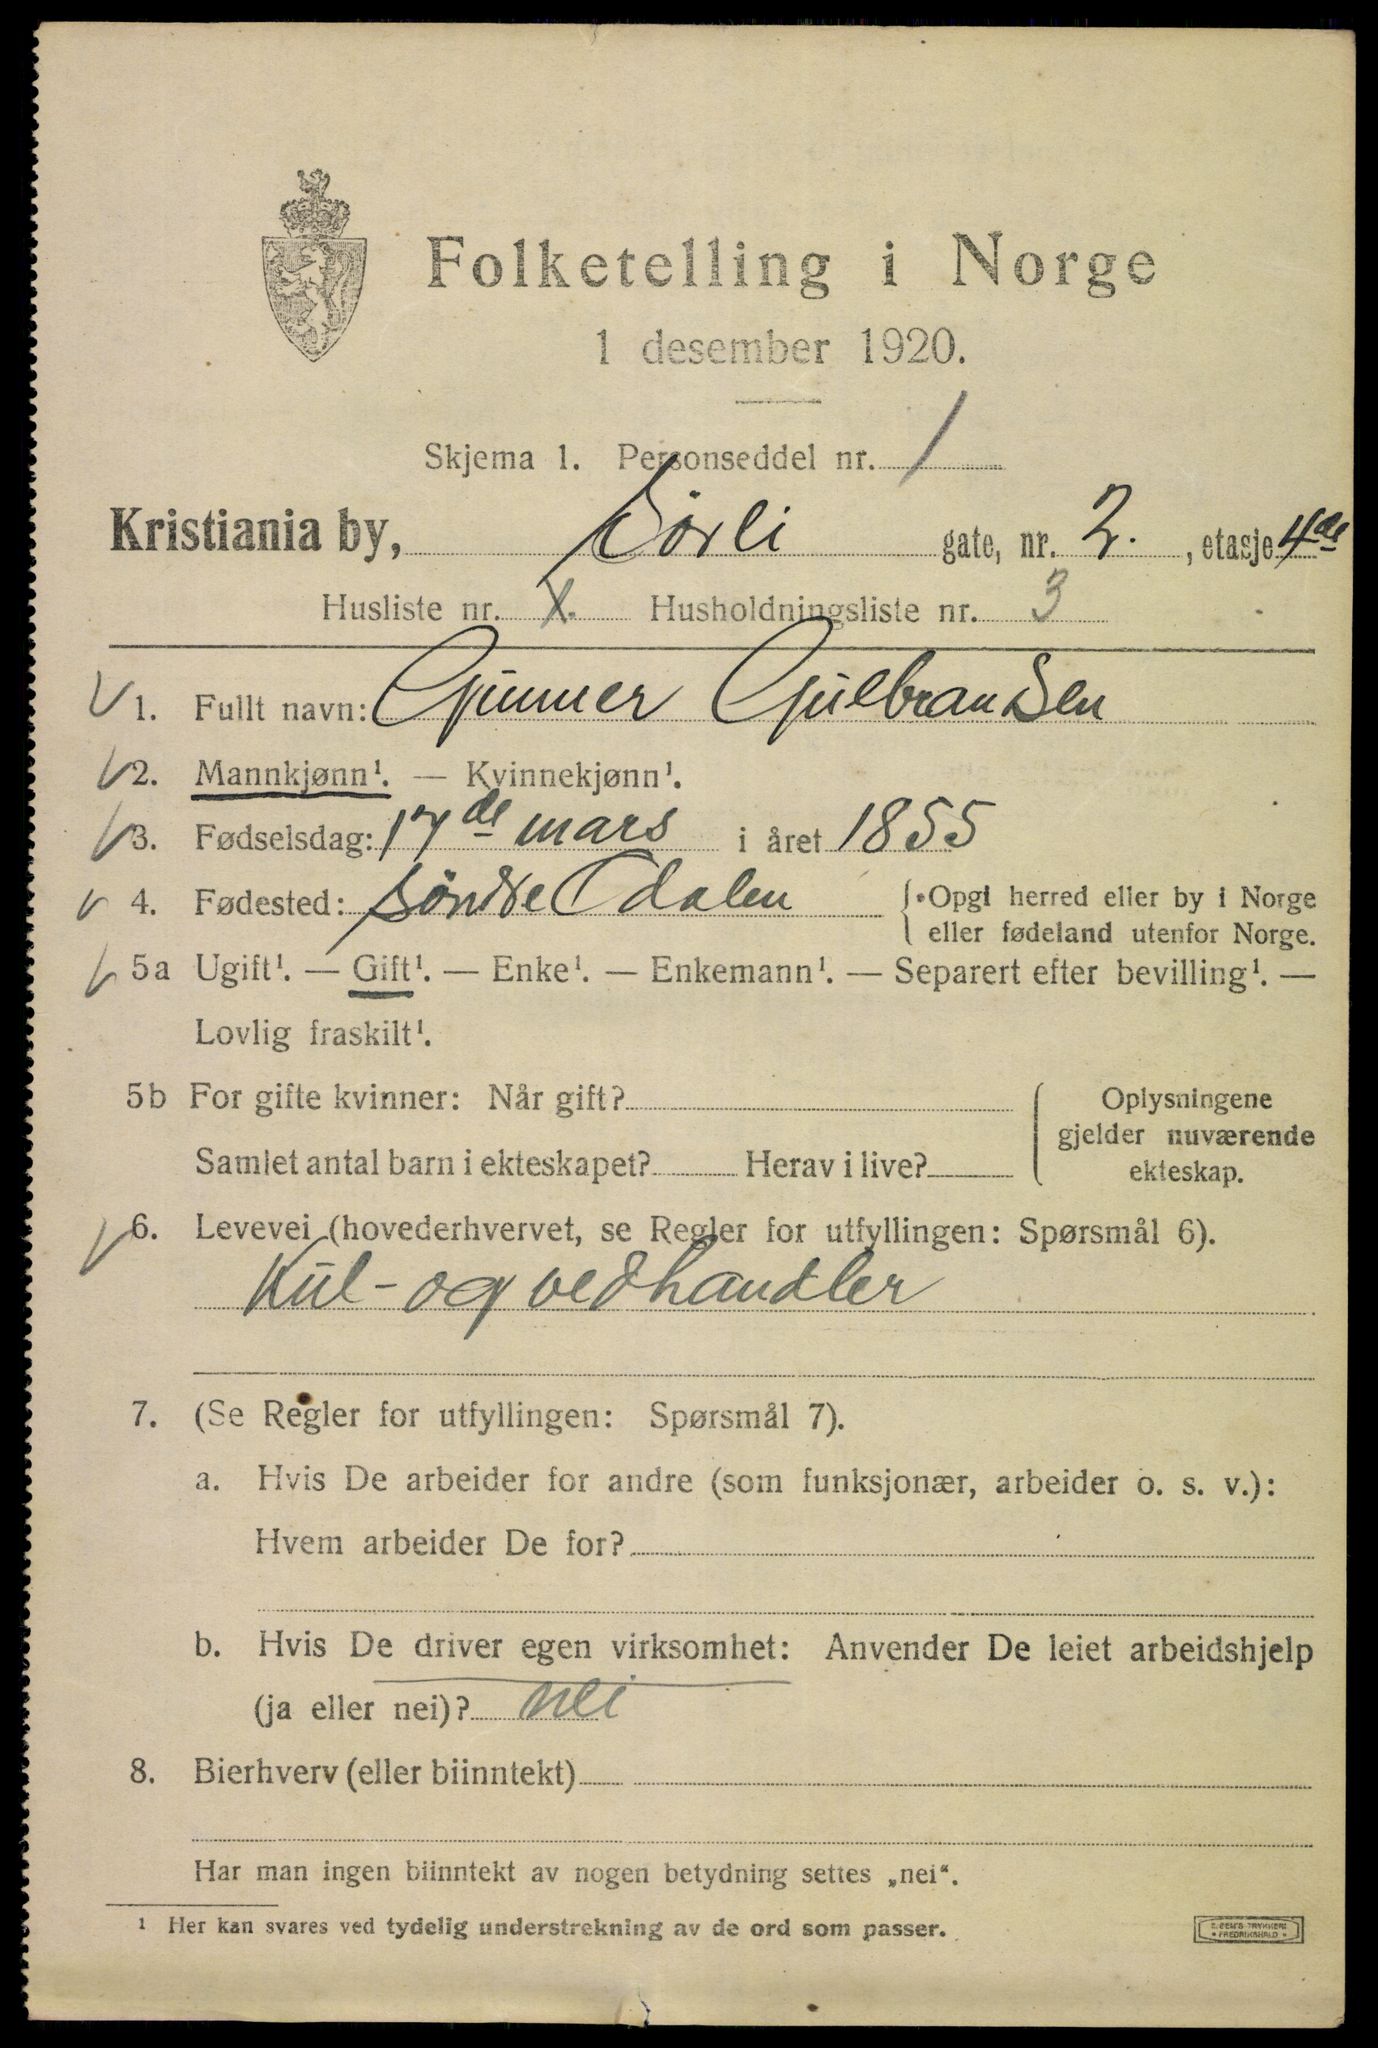 Folketelling i Norge
1 desember 1920.
Skjema 1. Personseddel nr. 1
Kristiania by, Sörli gate, nr. 2. , etasje 4de
Husliste nr. X. Husholdningsliste nr. 3
1. Fullt navn: Gunner Gulbransen
2. Mannkjønn¹. — Kvinnekjønn¹.
3. Fødselsdag: 17de mars i året 1855
4. Fødested: söndre Odalen { Opgi herred eller by i Norge
eller fødeland utenfor Norge.
5a Ugift¹. — Gift¹. — Enke¹. — Enkemann¹. — Separert efter bevilling¹. —
Lovlig fraskilt¹.
5b For gifte kvinner: Når gift?
Samlet antal barn i ekteskapet? Herav i live?
Oplysningene
gjelder nuværende
ekteskap.
6. Levevei (hovederhvervet, se Regler for utfyllingen: Spørsmål 6).
Kul- og vedhandler
7. (Se Regler for utfyllingen: Spørsmål 7).
a. Hvis De arbeider for andre (som funksjonær, arbeider o. s. v.):
Hvem arbeider De for?
b. Hvis De driver egen virksomhet: Anvender De leiet arbeidshjelp
(ja eller nei)? nei
8. Bierhverv (eller biinntekt)
Har man ingen biinntekt av nogen betydning settes „nei“.
¹ Her kan svares ved tydelig understrekning av de ord som passer.
TRYKKERI
FREDRIKSHALD